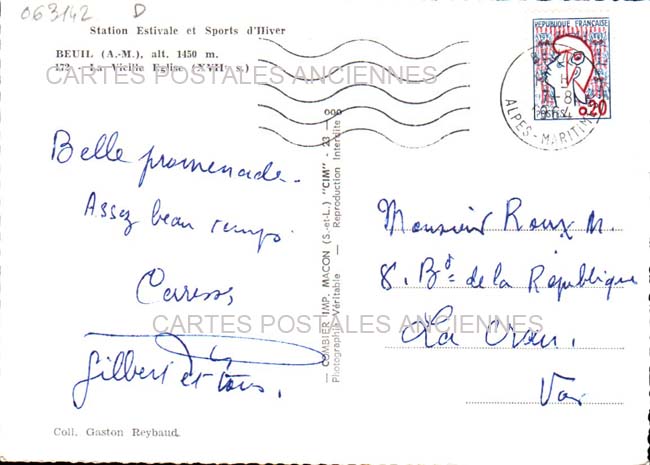 063142 D
Station Estivale et Sports d'Hiver
BEUIL (A.-M.), alt. 1450 m.
172 - La Vieille Eglise (XVII s.)
CARTES POSTALES ANCIENNES
RÉPUBLIQUE FRANÇAISE
POSTES
0,20
ALPES-MARITIMES
1964
Belle promenade.
Assez beau temps.
Caresses
Gilbert et tous.
Coll. Gaston Reybaud.
COMBIER IMP. MACON (S.-et-L.) "CIM" - 23 -
Photographie Véritable - Reproduction Interdite
Monsieur Roux M.
8. Bd de la République
CARTES POSTALES ANCIENNES
La Crau.
Var